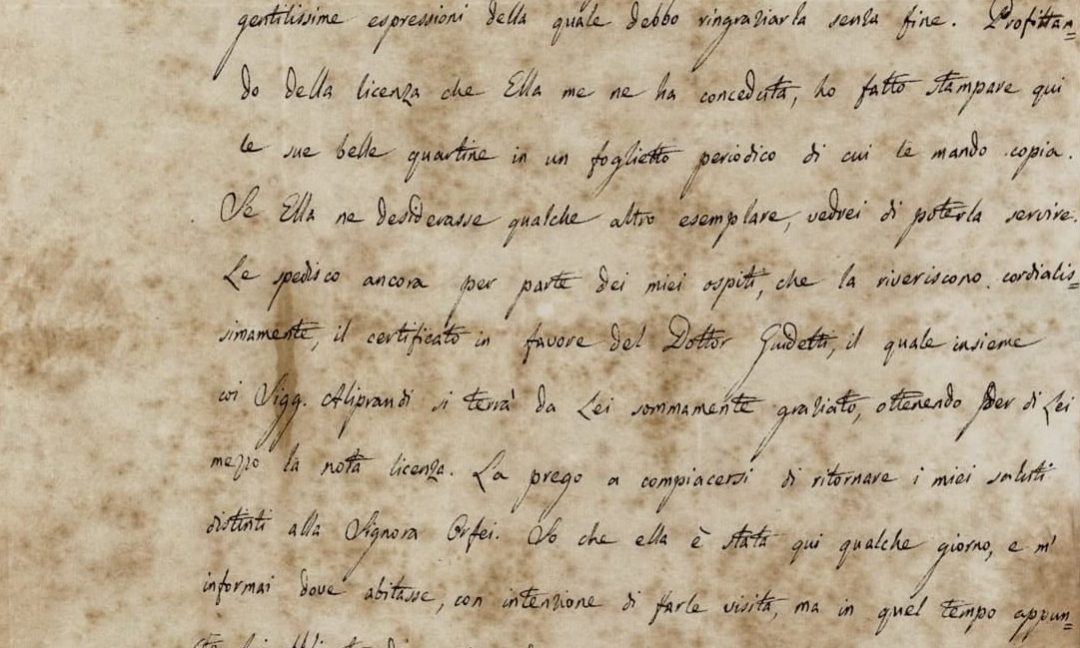 gentilissime espressioni della quale debbo ringraziarla senza fine. Profittan=
do della licenza che Ella me ne ha conceduta, ho fatto stampare qui
le sue belle quartine in un foglietto periodico di cui le mando copia.
Se Ella ne desiderasse qualche altro esemplare, vedrei di poterla servire.
Le spedisco ancora per parte dei miei ospiti, che la riveriscono cordialis=
simamente, il certificato in favore del Dottor Guidetti, il quale insieme
coi Sigg. Aliprandi si terrà da Lei sommamente graziato, ottenendo per di Lei
mezzo la nota licenza. La prego a compiacersi di ritornare i miei saluti
distinti alla Signora Orfei. So che ella è stata qui qualche giorno, e m'
informai dove abitasse, con intenzione di farle visita, ma in quel tempo appun=